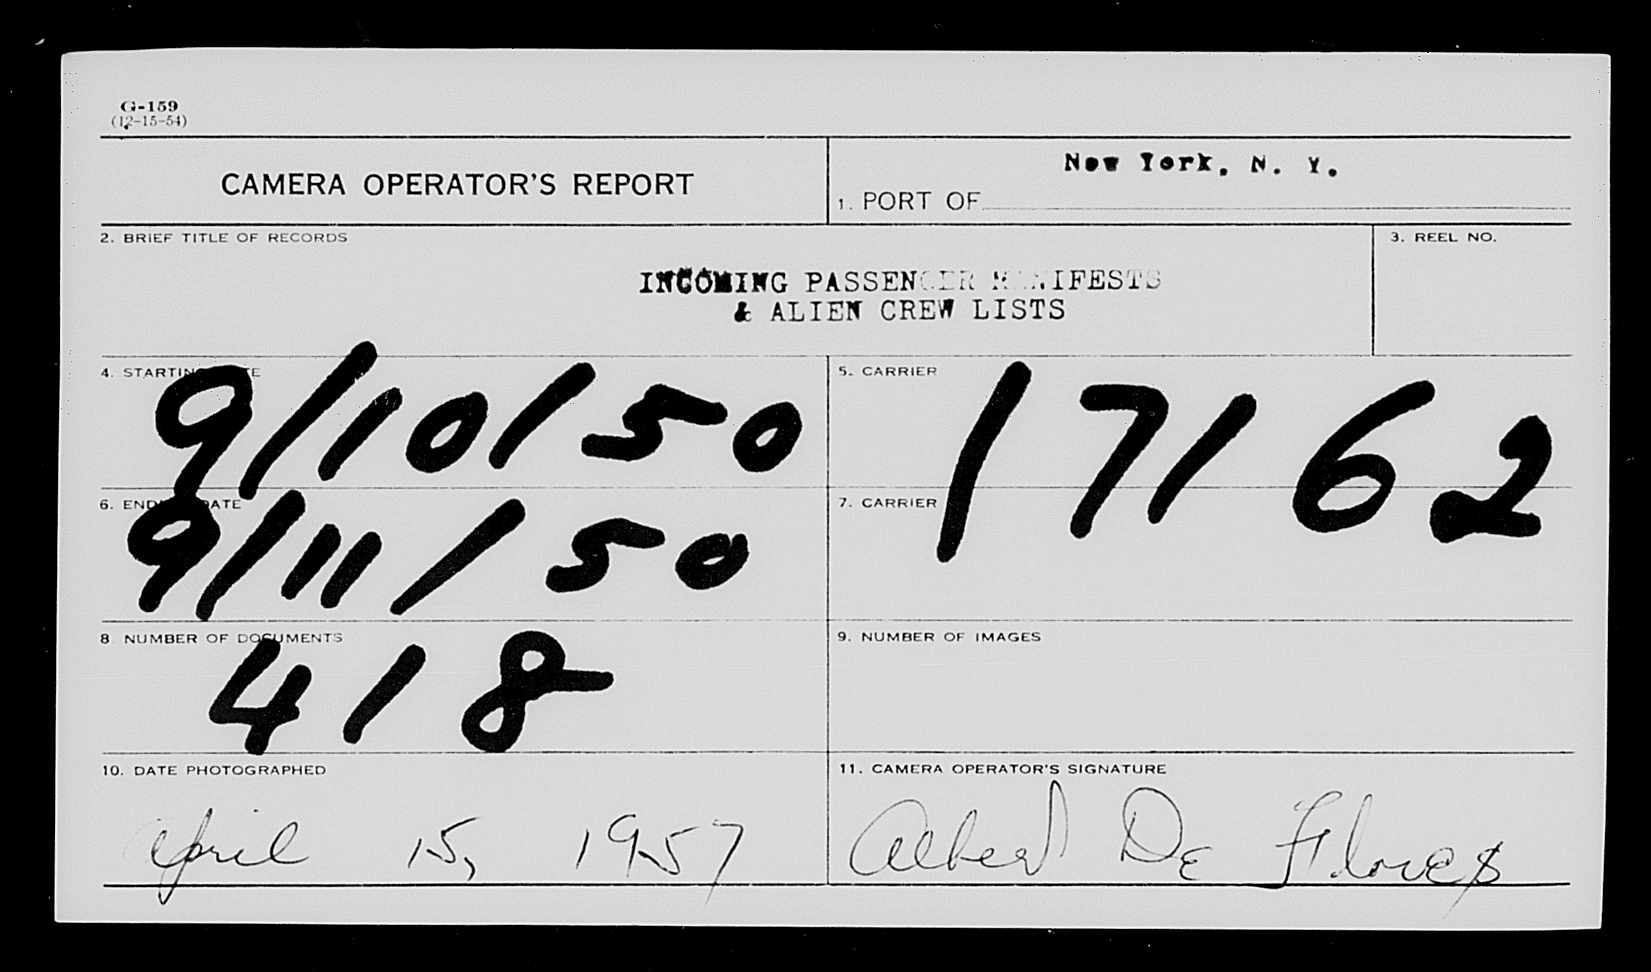 G-159
(12-15-54)
CAMERA OPERATOR'S REPORT
New York, N. Y.
1. PORT OF
2. BRIEF TITLE OF RECORDS
3. REEL NO.
INCOMING PASSENGER MANIFESTS
& ALIEN CREW LISTS
4. STARTING DATE
9/10/50
5. CARRIER
17162
6. ENDING DATE
9/11/50
7. CARRIER
8 NUMBER OF DOCUMENTS
418
9. NUMBER OF IMAGES
10. DATE PHOTOGRAPHED
April 15, 1957
11. CAMERA OPERATOR'S SIGNATURE
Albert De Flores